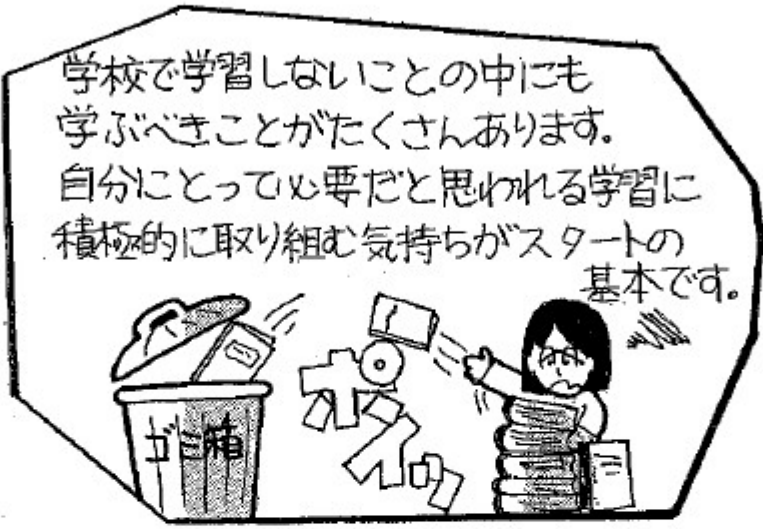 学校で学習しないことの中にも
学ぶべきことがたくさんあります。
自分にとって必要だと思われる学習に
積極的に取り組む気持ちがスタートの
基本です。
ポイッ
ゴミ箱